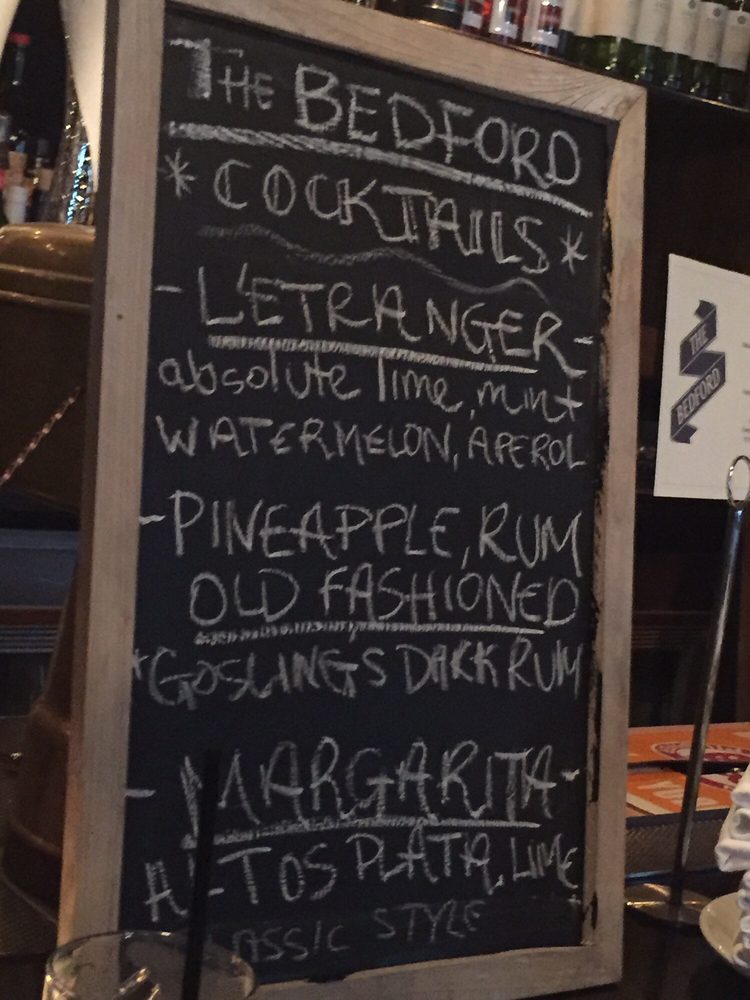 THE BEDFORD
* COCKTAILS *
- L'ETRANGER -
absolute lime, mint
WATERMELON, APEROL
- PINEAPPLE, RUM
OLD FASHIONED
*GOSLINGS DARK RUM
- MARGARITA -
ALTOS PLATA, LIME
ASSIC STYLE
THE
BEDFORD